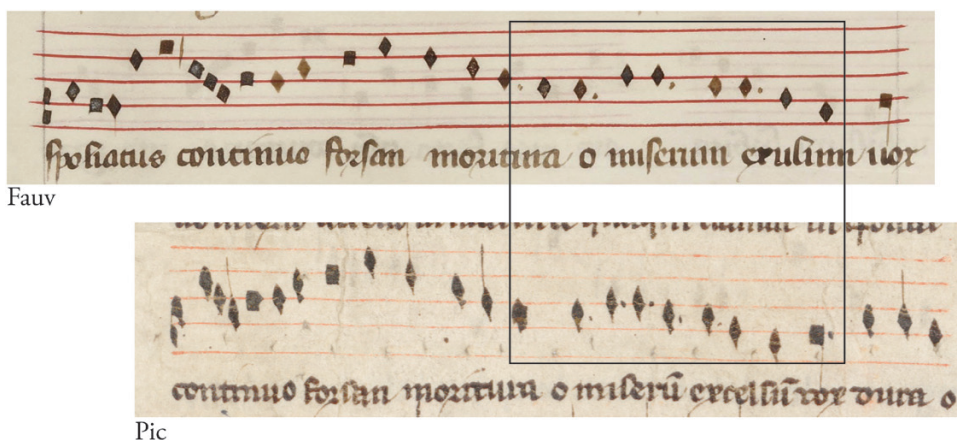 spoliatus continuo forsan moritura o miserum exulium uox
Fauv
continuo forsan moritura o miserū excelsū vox dura o
Pic